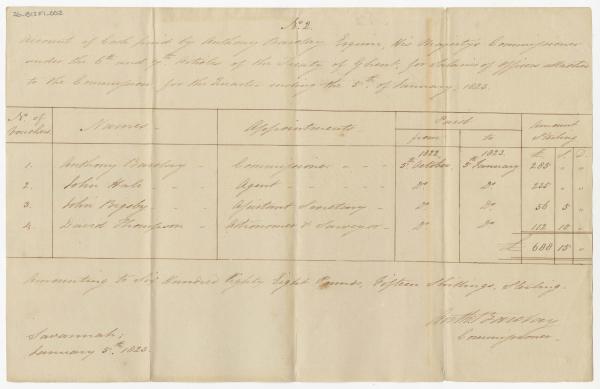 26-B12F1-002
No. 2.
Account of Cash paid by Anthony Barclay Esquire, His Majesty's Commissioner
under the 6th and 7th Articles of the Treaty of Ghent, for Salaries of Officers attached
to the Commission for the Quarter ending the 5th of January, 1823.
No. of Vouchers Names Appointments Period from to Amount Sterling
1822. 1823. £ S D
1. Anthony Barclay - - Commissioner - - - 5th October, 5th January 295 " "
2. John Hale - - - Agent - - - Do Do 225 " "
3. John Bigsby - - - Assistant Secretary - - Do Do 56 5 "
4. David Thompson - - Astronomer & Surveyor - Do Do 112 10 "
£ 688 15 "
Amounting to Six Hundred Eighty Eight Pounds, Fifteen Shillings, Sterling.
Anth: Barclay
Commissioner.
Savannah;
January 5th 1823.